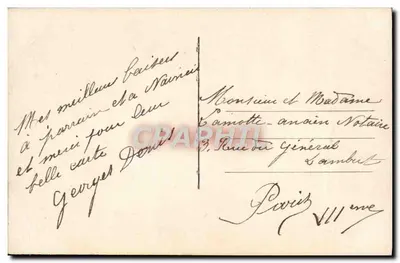 Mes meilleurs baisers
à parrain et a
et merci pour leur
belle carte
Georges
Monsieur et Madame
Lamotte-ancien Notaire
3. Rue du Général
Lambert
Paris
VII eme
CPARAMA